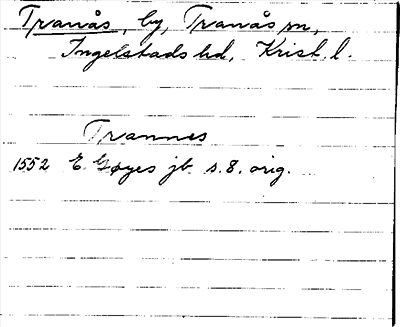 Tranås, by, Tranås sn,
Ingelstads hd, Krist. l.
Trannes
1552 E. Gøyes jb s. 8. orig.